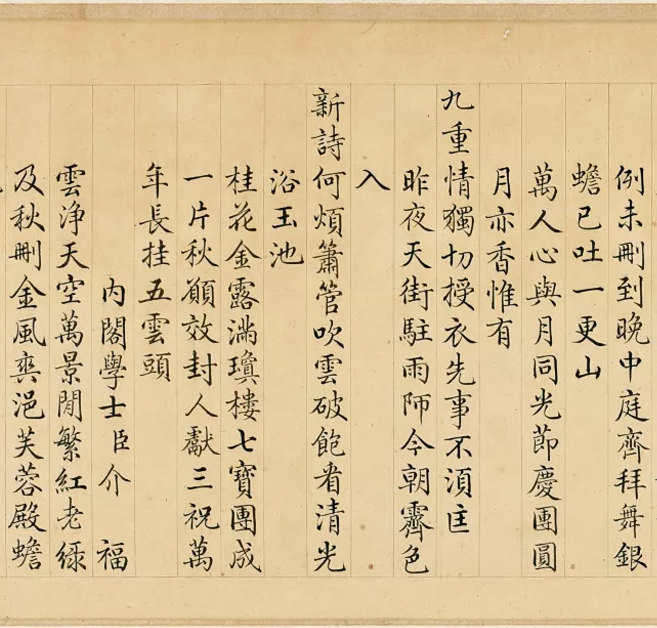 例未刪到晚中庭齊拜舞銀
蟾已吐一更山
萬人心與月同光節慶團圓
月亦香惟有
九重情獨切授衣先事不湏匡
昨夜天街駐雨師今朝霽色
入
新詩何煩簫管吹雲破飽看清光
浴玉池
桂花金露滿瓊樓七寶團成
一片秋願效封人獻三祝萬
年長挂五雲頭
內閣學士臣介福
雲淨天空萬景閒繁紅老綠
及秋刪金風爽浥芙蓉殿蟾